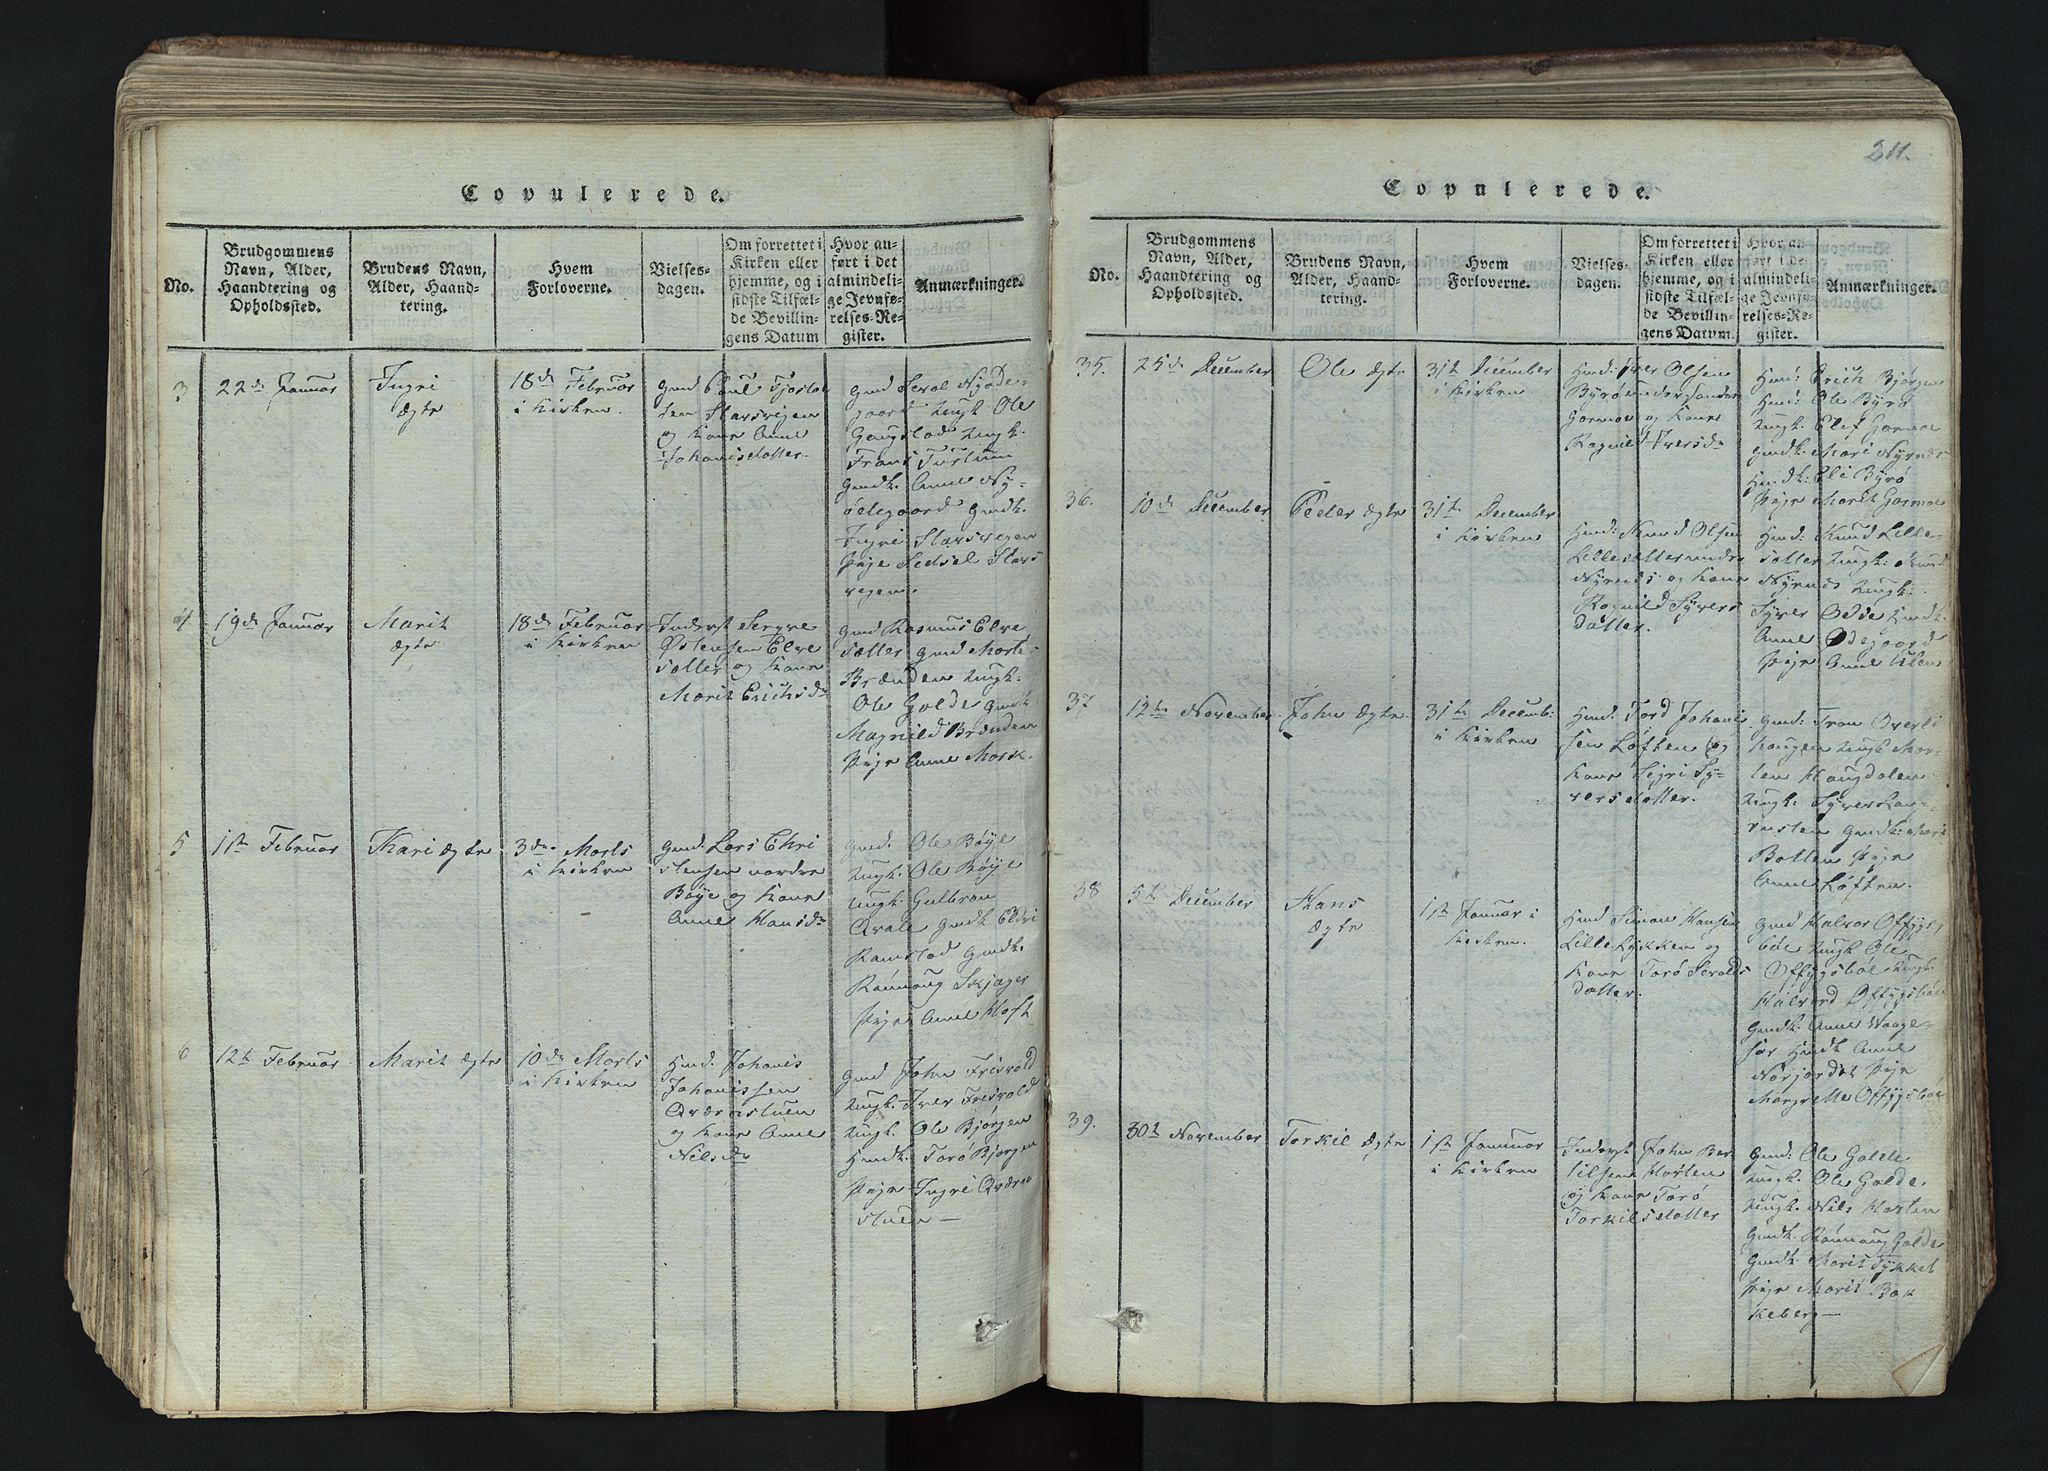 Copulerede.
No.
Brudgommens
Navn, Alder,
Haandtering og
Opholdssted.
Brudens Navn,
Alder, Haand-
tering.
Hvem
Forloverne.
Vielses-
dagen.
Om forrettet i
Kirken eller
hjemme, og i
sidste Tilfæl-
de Bevillin-
gens Datum
Hvor an-
ført i det
almindeli-
ge Jevnfø-
relses-Re-
gister.
Anmærkninger.
3
22de Januar
Ingri
ægte
18de Februar
i Kirken.
Gmd Poul
og Kone Anne
Johanisdatter.
Gmd
gaard Ungk Ole
Ungk.
Frans
Gmdk. Anne Ny-
ødegaard Gmdk.
Ingri
Pige
4
19de Januar
Marit
ægte
18de Februar
i Kirken
Inderst
Østensen Elve
sætter og Kone
Marit Erichsdr
Gmd Rasmus Elve
sætter Gmd
Brænden Ungk.
Ole Golde Gmdk
Magnild Brænden
Pige Anne Mork.
5
1ste Februar
Mari ægte
3die Marts
i Kirken
Gmd: Lars Chri
stensen nordre
Bøye og Kone
Anne Hansdr
Gmd: Ole Bøye
Ungk. Ole Bøye
Ungk. Gulbran
Qvale Gmdk Eldri
Ramstad Gmdk.
Rønnoug Skjager
Pige Anne
6
12te Februar
Marit ægte
10de Marts
i Kirken
Hmd: Johanis
Johanissen
Qværnstuen
og Kone Anne
Nilsdr
Gmd John Frisvold
Ungk. Iver Frisvold
Ungk. Ole Bjørgen
Hmdk. Torø Bjørgen
Pige Ingri Qværn
stuen —
211.
Copulerede.
No.
Brudgommens
Navn, Alder,
Haandtering og
Opholdssted.
Brudens Navn,
Alder, Haand-
tering.
Hvem
Forloverne.
Vielses-
dagen.
Om forrettet i
Kirken eller
hjemme, og i
sidste Tilfæl-
de Bevillin-
gens Datum.
Hvor an-
ført i de
almindeli-
ge Jevnfø-
relses-Re-
gister.
Anmærkninger.
35.
25de December
Ole ægte
31te December
i Kirken
Hmd: Iver Olsen
Byrø under Sønder
Garmoe og Kone
Ragnild Iversdr
Hmd: Erich Bjørgen
Hmd: Ole Byrø
Ungk. Elef Garmoe
Gmdk. Mari Nyrnes
Hmdk: Eli Byrø
Pige Marit Garmoe
36.
10de December
Peder ægte
31te December
i Kirken
Hmd: Knud Olsen
Lillesætter under
Nyrnes og Kone
Ragnild Syvers
datter.
Hmd: Knud Lille-
sætter Ungk: Knud
Nyrnes Ungk:
Syver Odde Hmdk.
Anne Ødegaard
Pige Anne
37
12te November
John ægte
31te Decemb:
i Kirken
Hmd: Tord Johanis
sen Løften og
Kone Sigri Sy-
versdatter.
Gmd: Tron Øverli
haugen Ungk Mor-
ten Haugdalen
Ungk: Syver
Gmdk: Mari
Botten Pige
Anne Løften.
38
5te December
Hans
Ægte
1ste Januar i
Kirken.
Hmd Simon Hansen
Lille Lykken og
Kone Torø
datter.
Gmd Halvor Offigs-
bøe Ungk Ole
Offygsbøe Ungk.
Halvord Offygsbøe
Gmdk. Anne Waage-
Hmdk Anne
Norjordet Pige
Margrette Offygsbøe
39.
30te November
Torkil ægte
1ste Januar
i Kirken
Inderst John Ber
tilsen Horten
og Kone Torø
Torkilsdatter
Gmd: Ole Golde
Ungk. Ole Golde
Ungk. Nils Horten
Gmdk. Rønnoug Golde
Gmdk. Marit
Pige Marit Bak
keberg —